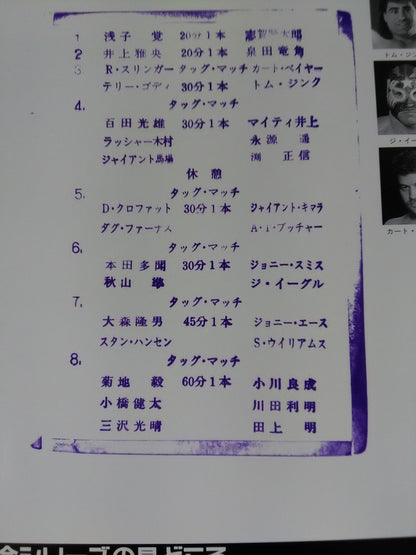 1 浅子 覚 20分1本 志賀賢太郎
2 井上雅央 20分1本 泉田竜角
3 R・スリンガー タッグ・マッチ カート・ベイヤー
テリー・ゴディ 30分1本 トム・ジンク
4. タッグ・マッチ
百田光雄 30分1本 マイティ井上
ラッシャー木村 永源 遥
ジャイアント馬場 渕 正信
休憩
5. タッグ・マッチ
D・クロファット 30分1本 ジャイアント・キマラ
ダグ・ファーナス A・T・ブッチャー
6. タッグ・マッチ
本田多聞 30分1本 ジョニー・スミス
秋山 準 ジ・イーグル
7. タッグ・マッチ
大森隆男 45分1本 ジョニー・エース
スタン・ハンセン S・ウイリアムス
8. タッグ・マッチ
菊地 毅 60分1本 小川良成
小橋健太 川田利明
三沢光晴 田上 明
トム・ジン
ジ・イー
カート・